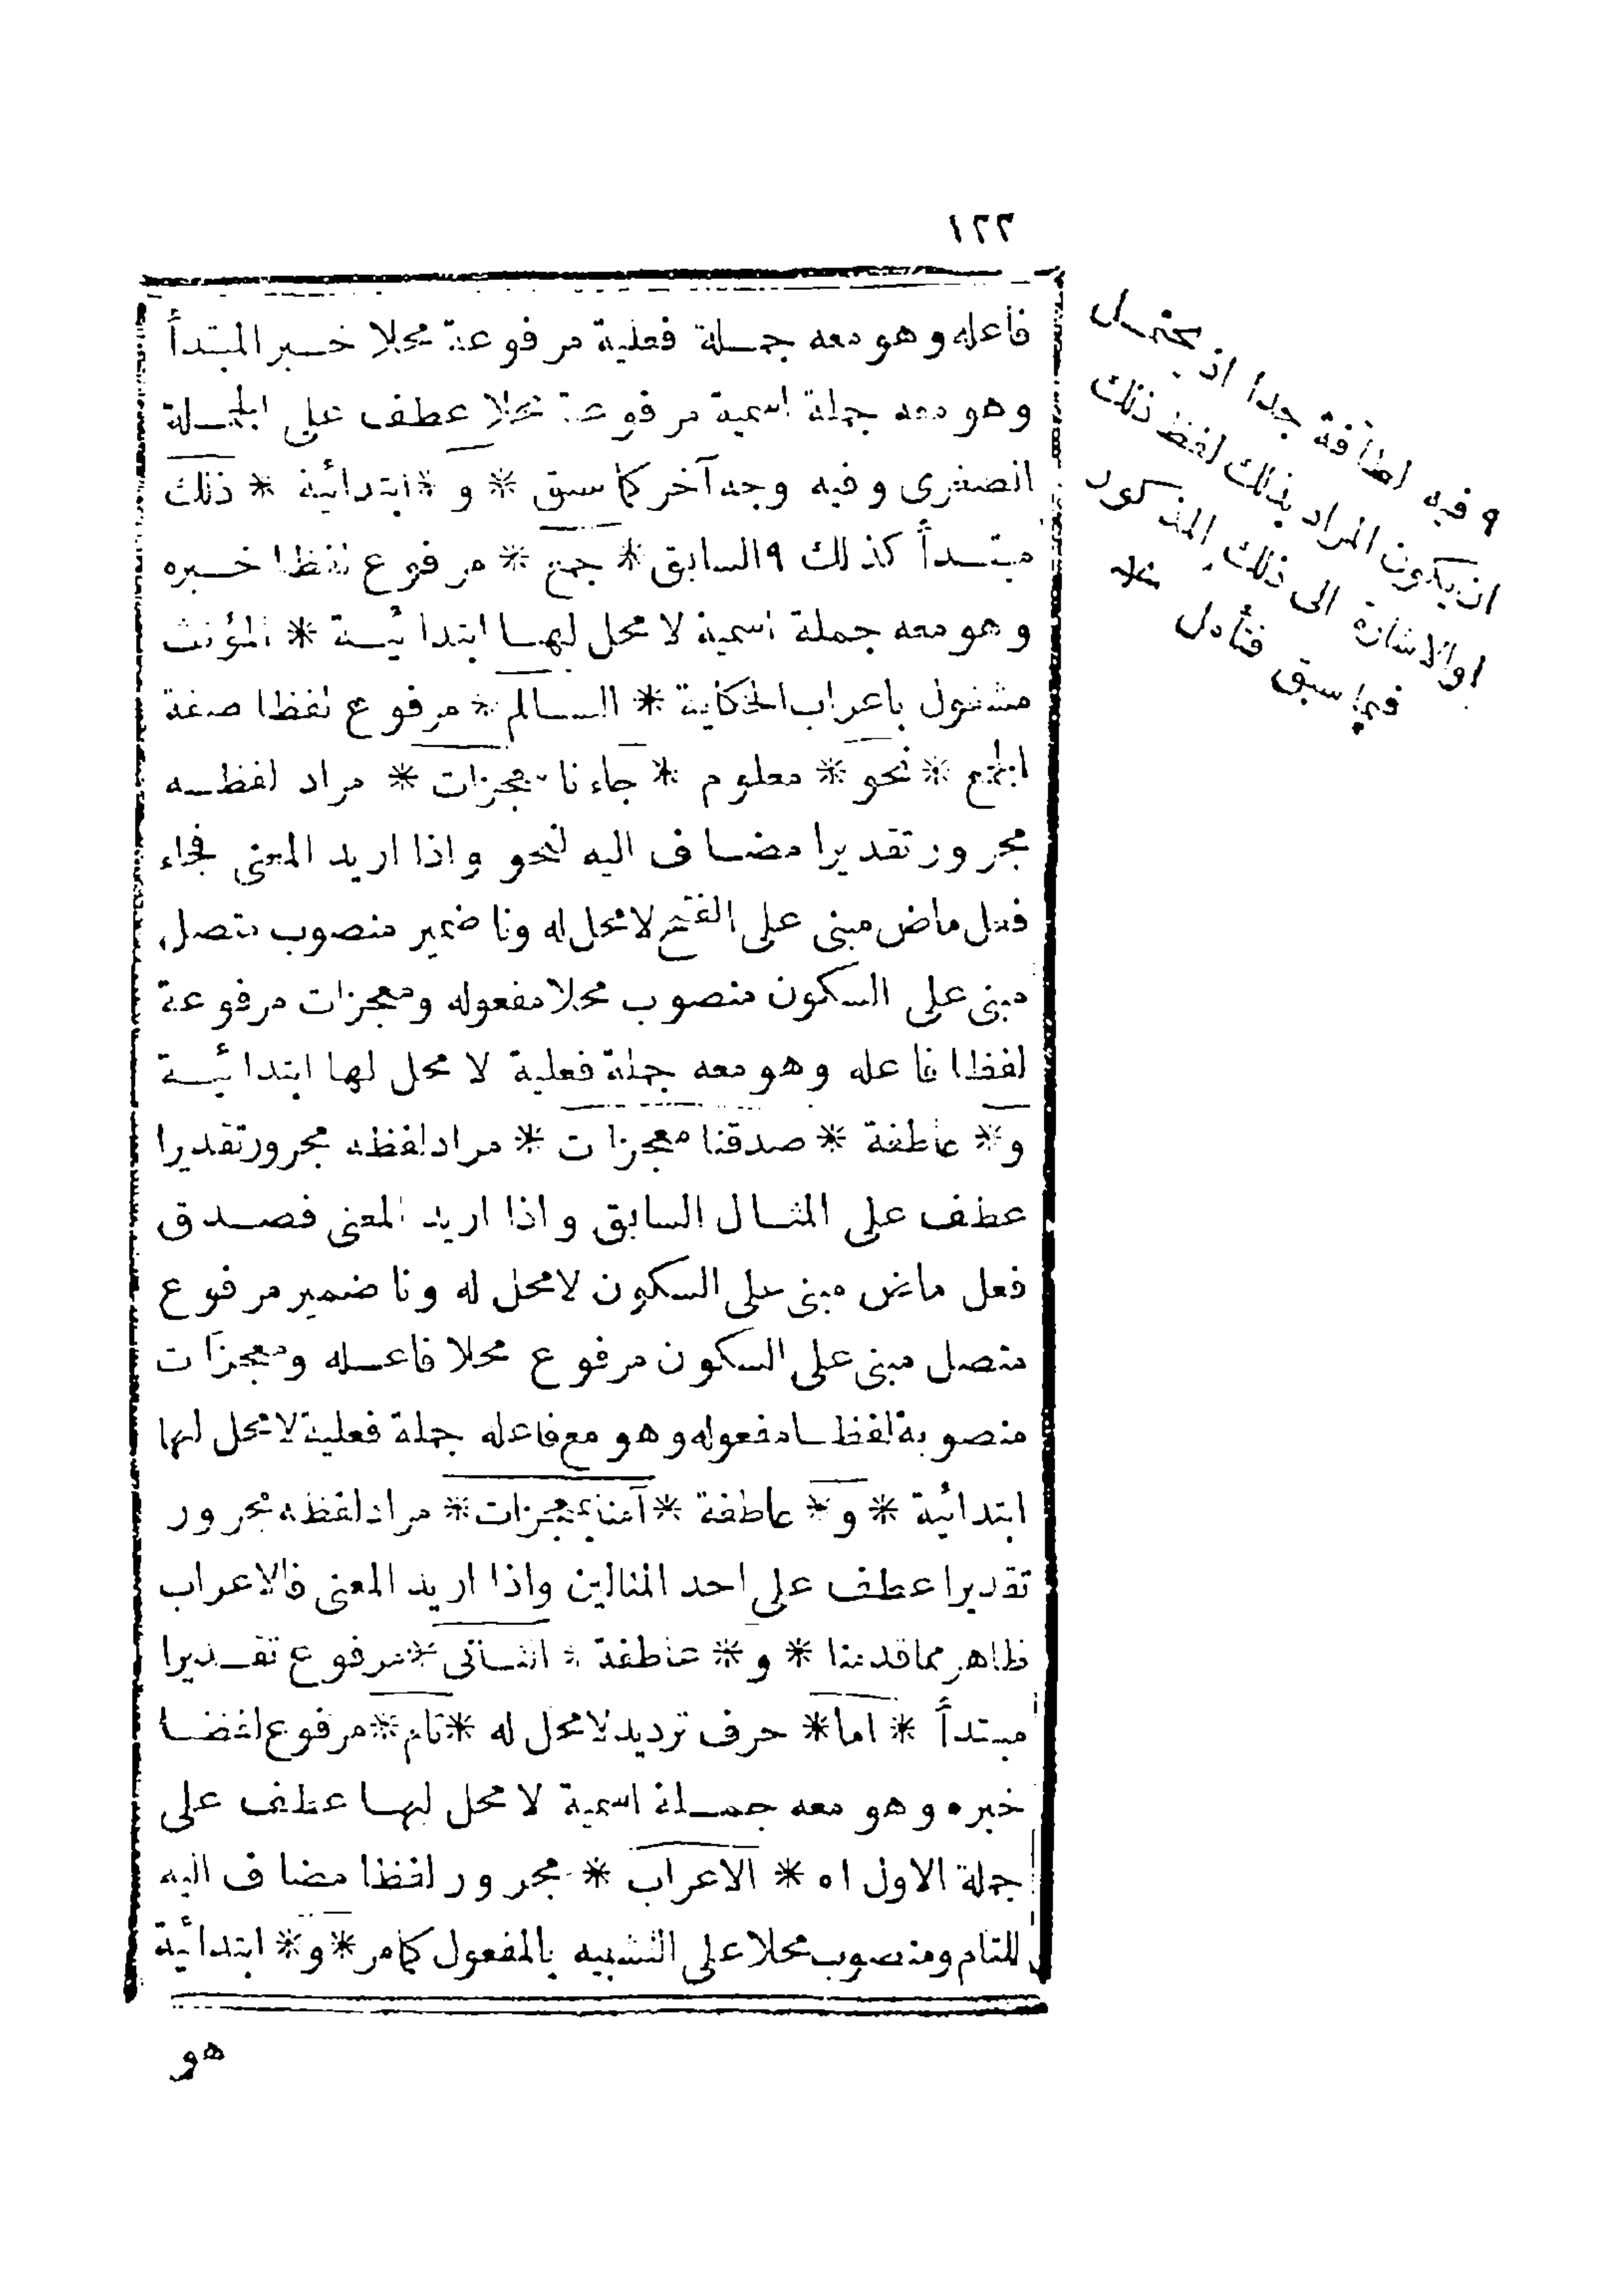 ١٢٢
فاعله وهو معه جملة فعلية مرفوعة محلا خبر المبتدأ
وهو معه جملة اسمية مرفوعة محلا عطف على الجملة
الصغرى وفيه وجه آخر كما سبق * و * ابتدائية * ذلك
مبتدأ كذلك ٩ السابق * جمع * مرفوع لفظا خبره
وهو معه جملة اسمية لا محل لها ابتدائية * المؤنث
مشغول باعراب الحكاية * السالم * مرفوع لفظا صفة
الجمع * نحو * معلوم * جاءنا معجزات * مراد لفظه
مجرور تقديرا مضاف اليه لنحو واذا اريد المعنى فجاء
فعل ماض مبنى على الفتح لا محل له ونا ضمير منصوب متصل
مبنى على السكون منصوب محلا مفعوله ومعجزات مرفوعة
لفظا فاعله وهو معه جملة فعلية لا محل لها ابتدائية
و * عاطفة * صدقنا معجزات * مراد لفظه مجرور تقديرا
عطف على المثال السابق واذا اريد المعنى فصدق
فعل ماض مبنى على السكون لا محل له ونا ضمير مرفوع
متصل مبنى على السكون مرفوع محلا فاعله ومعجزات
منصوبة لفظا مفعوله وهو مع فاعله جملة فعلية لا محل لها
ابتدائية * و * عاطفة * آمنا بمعجزات * مراد لفظه مجرور
تقديرا عطف على احد المثالين واذا اريد المعنى فالاعراب
ظاهر مما قدمنا * و * عاطفة * الثانى * مرفوع تقديرا
مبتدأ * اما * حرف ترديد لا محل له * تام * مرفوع لفظا
خبره وهو معه جملة اسمية لا محل لها عطف على
جملة الاول اه * الاعراب * مجرور لفظا مضاف اليه
للتام ومنصوب محلا على التشبيه بالمفعول كما مر * و * ابتدائية
هو
٩ فيه لطافة جدا اذ يحتمل
ان يكون المراد بذلك لفظ ذلك
او الاشارة الى ذلك المذكور
فيما سبق فتأمل *